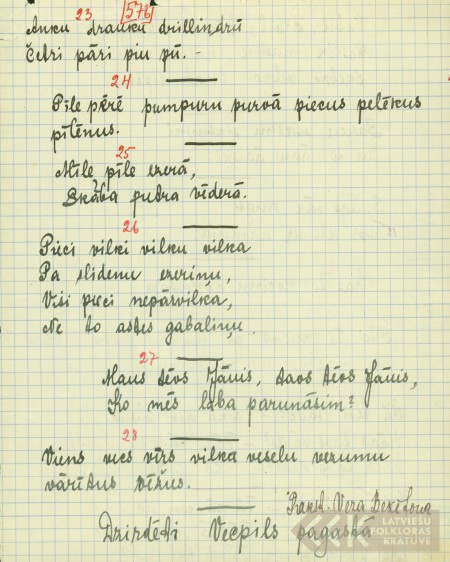 23 576
Anku dranku drillindrū
Četri pāri piu pū. -
24
Pīle pērē pumpuru purvā piecus pelēkus
pīlēnus.
25
Mīle pīle ezerā,
Skāba putra vēderā.
26
Pieci vilki vilku vilka
Pa slidenu ezeriņu,
Visi pieci nepārvilka,
Ne to astes gabaliņu.
27
Mans tēvs Jānis, tavs tēvs Jānis,
Ko mēs laba parunāsim?
28
Viens vecs vīrs vilka veselu vezumu
vārītus vēžus.
Vera
Dzirdēti Vecpils pagastā
LATVIEŠU
FOLKLORAS
KRĀTUVE